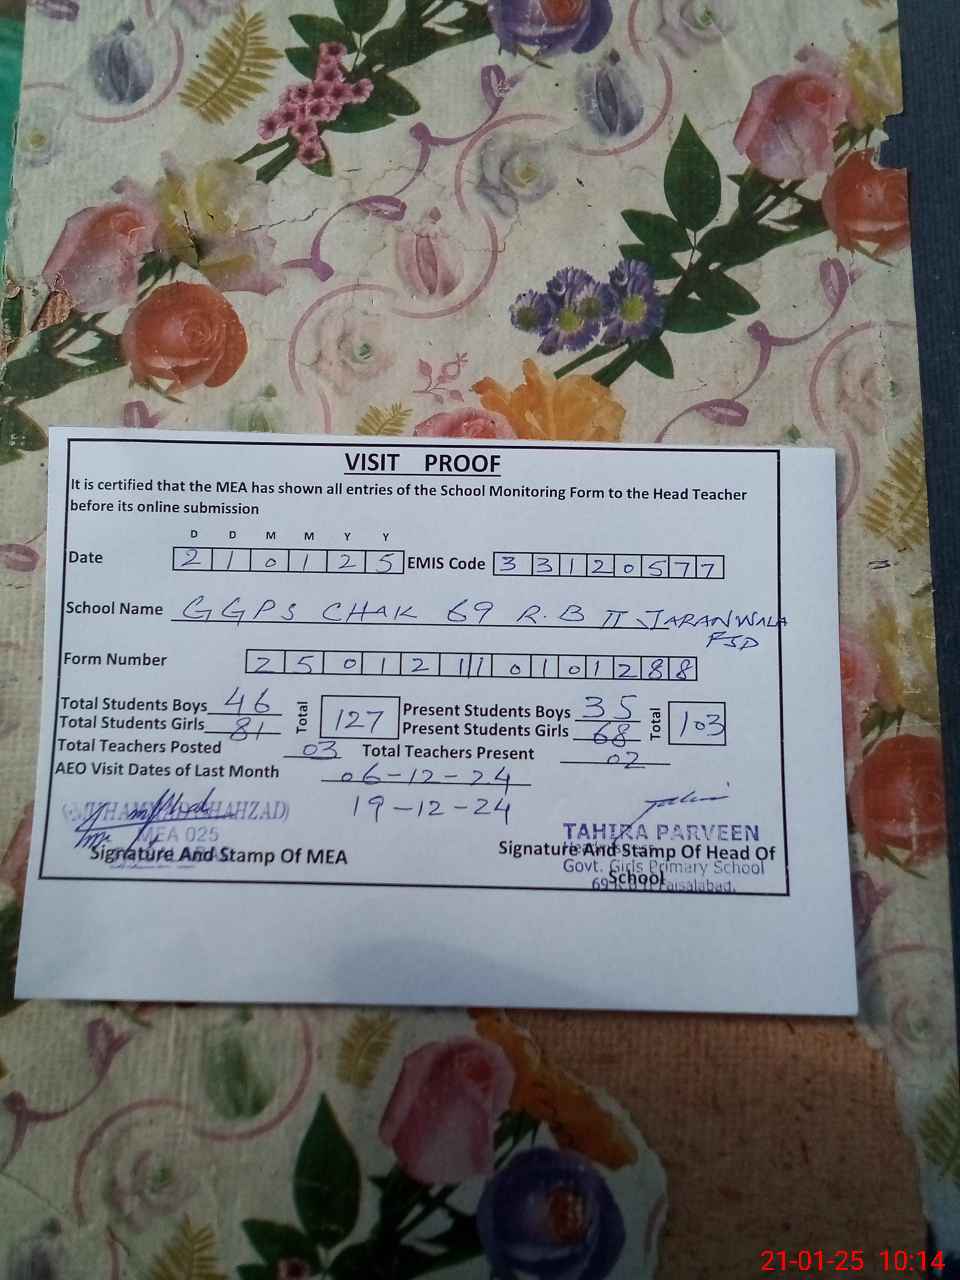 VISIT PROOF
It is certified that the MEA has shown all entries of the School Monitoring Form to the Head Teacher
before its online submission
D D M M Y Y
Date 2 1 0 1 2 5 EMIS Code 3 3 1 2 0 5 7 7
School Name GGPS CHAK 69 R.B II JARANWALA
FSD
Form Number 2 5 0 1 2 1 1 0 1 0 1 2 8 8
Total Students Boys 46 Total 127 Present Students Boys 35 Total 103
Total Students Girls 81 Present Students Girls 68
Total Teachers Posted 03 Total Teachers Present 02
AEO Visit Dates of Last Month 06-12-24
19-12-24
MEA 025
Signature And Stamp Of MEA
TAHIRA PARVEEN
Signature And Stamp Of Head Of
Govt. Girls Primary School
School
Faisalabad.
21-01-25 10:14